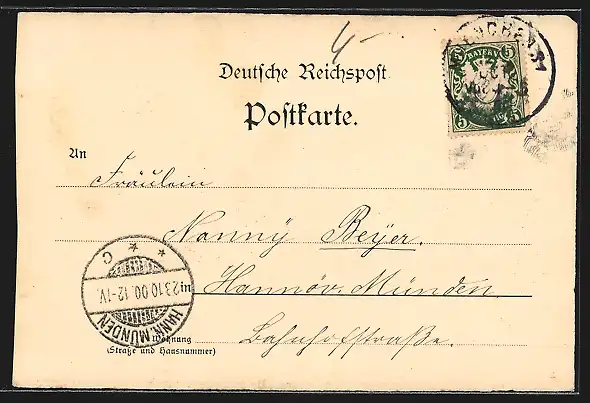 4
MÜNCHEN 31
5 BAYERN 5
5 5
Deutsche Reichspost
Postkarte.
An
Fräulein
Nanny Beyer.
in Hannöv. Münden
Bahnhofstraße.
* * C
23.10.00.12-1V.
HANN. MÜNDEN
Wohnung
(Straße und Hausnummer)